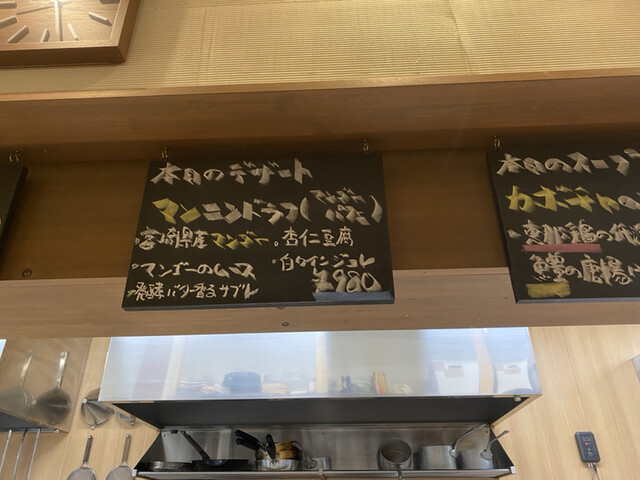 本日のデザート
マンニンドラフ(マンゴーパフェ)
○宮崎県産マンゴー ○杏仁豆腐
○マンゴーのムース ○白ワインジュレ
○発酵バター香るサブレ ¥980
本日のスープ
カボチャの
恵那鶏の
鱧の唐揚